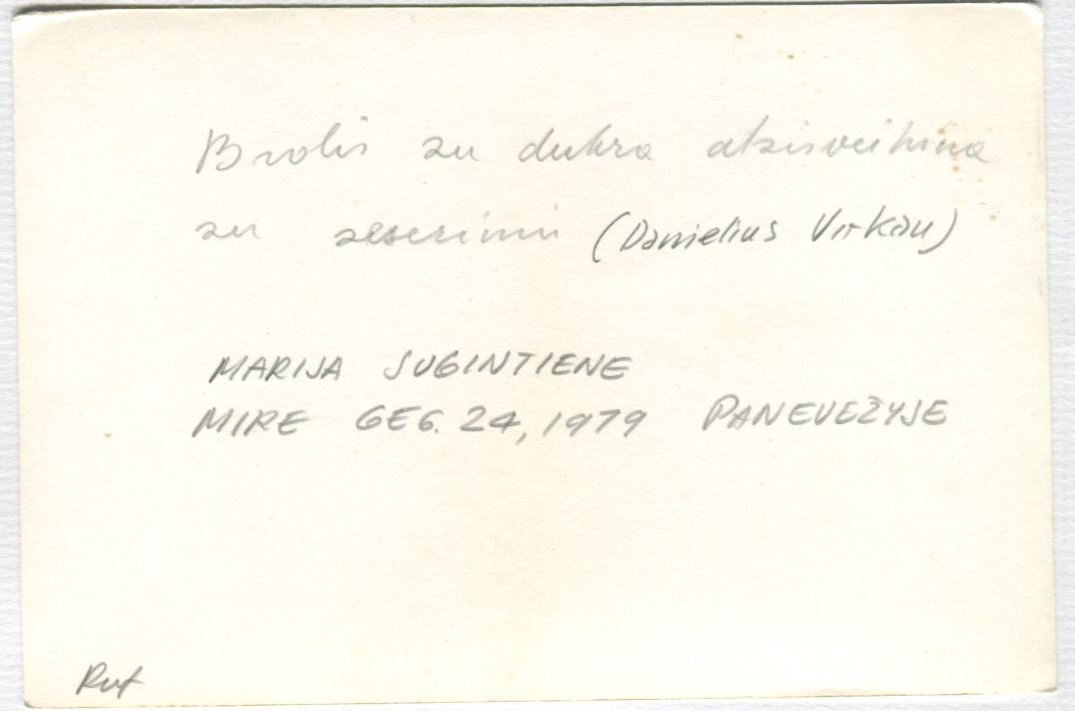 Brolis su dukra atsisveikina
su seserimi (Danielius Virkau)
MARIJA SUGINTIENE
MIRE GEG. 24, 1979 PANEVEŽYJE
Rut